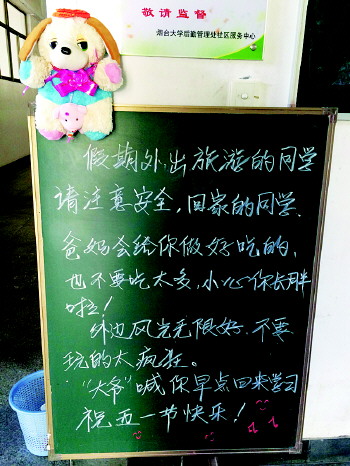 敬请监督
烟台大学后勤管理处社区服务中心
假期外出旅游的同学
请注意安全,回家的同学.
爸妈会给你做好吃的,
也不要吃太多,小心你长胖
啦!
外边风光无限好.不要
玩的太疯狂。
“大爷”喊你早点回来学习
祝五一节快乐!